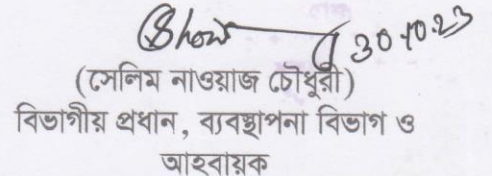 30.10.23
(সেলিম নাওয়াজ চৌধুরী)
বিভাগীয় প্রধান, ব্যবস্থাপনা বিভাগ ও
আহবায়ক